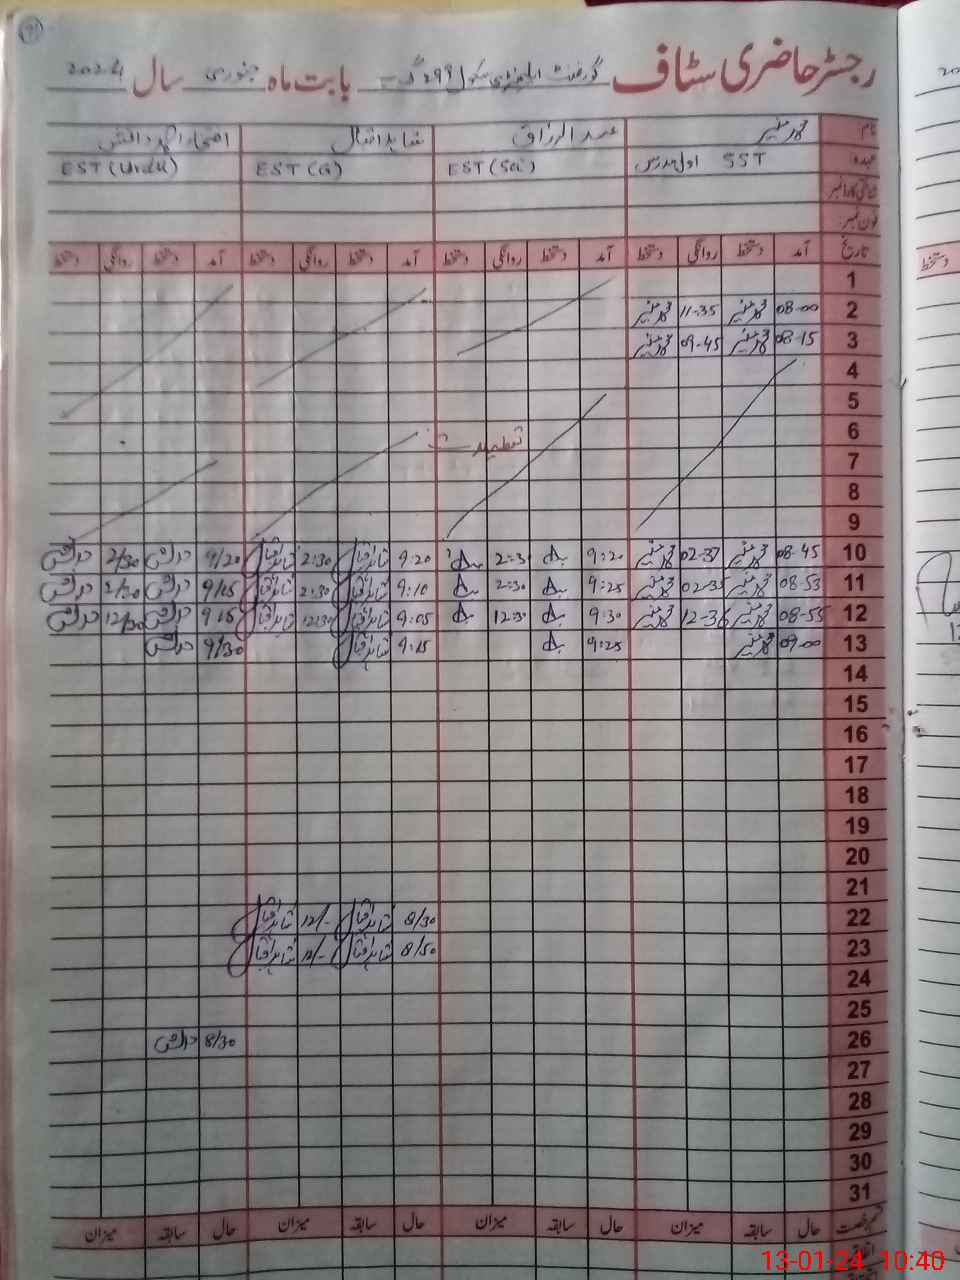 رجسٹر حاضری سٹاف گورنمنٹ ایلیمنٹری سکول 299 گ ب بابت ماہ جنوری سال 2024
نام محمد منیر عبدالرزاق شاہد اقبال افتخار احمد دانش
عہدہ SST اول مدرس EST (Sci) EST (G) EST (Urdu)
شناختی کارڈ نمبر
فون نمبر
تاریخ آمد دستخط روانگی دستخط آمد دستخط روانگی دستخط آمد دستخط روانگی دستخط آمد دستخط روانگی دستخط
1
2 08-00 محمد منیر 11-35 محمد منیر
3 08-15 محمد منیر 09-45 محمد منیر
4
5
6
تعطیلات
7
8
9
10 08-45 محمد منیر 02-37 محمد منیر 9:20 2:30 9:20 شاہد اقبال 2:30 شاہد اقبال 9/20 دانش 2/30 دانش
11 08-53 محمد منیر 02-35 محمد منیر 9:25 2:30 9:10 شاہد اقبال 2:30 شاہد اقبال 9/15 دانش 2/30 دانش
12 08-55 محمد منیر 12-36 محمد منیر 9:30 12:30 9:05 شاہد اقبال 12:30 شاہد اقبال 9 15 دانش 12/30 دانش
13 09-00 محمد منیر 9:25 9:15 شاہد اقبال 9/30 دانش
14
15
16
17
18
19
20
21
22 8/30 شاہد اقبال 12/- شاہد اقبال
23 8/50 شاہد اقبال 12/- شاہد اقبال
24
25
26 8/30 دانش
27
28
29
30
31
حال سابقہ میزان حال سابقہ میزان حال سابقہ میزان حال سابقہ میزان
13-01-24 10:40